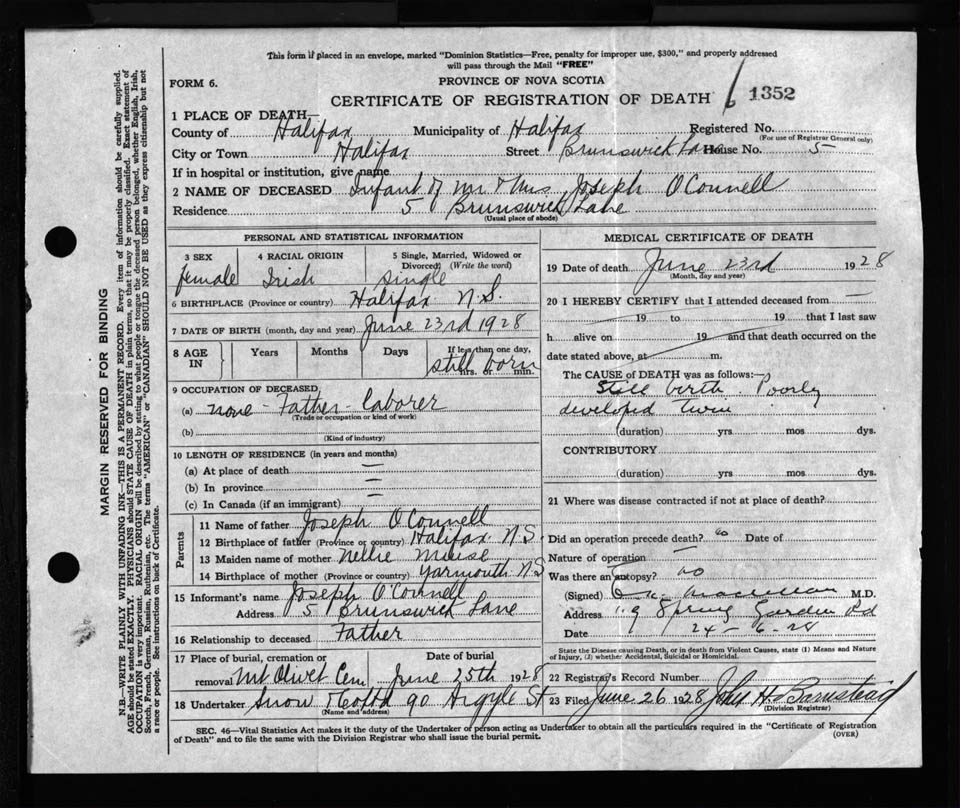 This form if placed in an envelope, marked "Dominion Statistics—Free, penalty for improper use, $300," and properly addressed
will pass through the Mail "FREE"
FORM 6.
PROVINCE OF NOVA SCOTIA
CERTIFICATE OF REGISTRATION OF DEATH
1352
1 PLACE OF DEATH—
County of Halifax Municipality of Halifax Registered No.
(For use of Registrar General only)
City or Town Halifax Street Brunswick Lane House No. 5
If in hospital or institution, give name
2 NAME OF DECEASED Infant of Mr. & Mrs Joseph O'Connell
Residence 5 Brunswick Lane
(Usual place of abode)
PERSONAL AND STATISTICAL INFORMATION
3 SEX 4 RACIAL ORIGIN 5 Single, Married, Widowed or
Divorced (Write the word)
female Irish single
6 BIRTHPLACE (Province or country) Halifax N.S.
7 DATE OF BIRTH (month, day and year) June 23rd 1928
8 AGE IN Years Months Days If less than one day,
hrs. or min.
still born
9 OCCUPATION OF DECEASED
(a) none - Father - laborer
(Trade or occupation or kind of work)
(b)
(Kind of industry)
10 LENGTH OF RESIDENCE (in years and months)
(a) At place of death —
(b) In province —
(c) In Canada (if an immigrant) —
Parents
11 Name of father Joseph O'Connell
12 Birthplace of father (Province or country) Halifax N.S.
13 Maiden name of mother Nellie Muise
14 Birthplace of mother (Province or country) Yarmouth N.S
15 Informant's name Joseph O'Connell
Address 5 Brunswick Lane
16 Relationship to deceased Father
17 Place of burial, cremation or Date of burial
removal Mt Olivet Cem June 25th 1928
18 Undertaker Snow & Co Ltd 90 Argyle St
(Name and address)
MEDICAL CERTIFICATE OF DEATH
19 Date of death June 23rd 1928
(Month, day and year)
20 I HEREBY CERTIFY that I attended deceased from —
19 to 19 that I last saw
h alive on 19 and that death occurred on the
date stated above, at m.
The CAUSE OF DEATH was as follows:—
Still birth. Poorly
developed twin
(duration) yrs mos dys.
CONTRIBUTORY
(duration) yrs mos dys.
21 Where was disease contracted if not at place of death?
Did an operation precede death? no Date of
Nature of operation —
Was there an autopsy? no
(Signed) M.D.
Address Spring Garden Rd
Date 24-6-28
State the Disease causing Death, or in death from Violent Causes, state (1) Means and Nature
of Injury, (2) whether Accidental, Suicidal or Homicidal.
22 Registrar's Record Number
23 Filed June 26 1928 John H. Barnstead
(Division Registrar)
SEC. 46—Vital Statistics Act makes it the duty of the Undertaker or person acting as Undertaker to obtain all the particulars required in the "Certificate of Registration
of Death" and to file the same with the Division Registrar who shall issue the burial permit.
(OVER)
MARGIN RESERVED FOR BINDING
N.B.—WRITE PLAINLY WITH UNFADING INK—THIS IS A PERMANENT RECORD. Every item of information should be carefully supplied.
AGE should be stated EXACTLY. PHYSICIANS should STATE CAUSE OF DEATH in plain terms, so that it may be properly classified. Exact statement of
OCCUPATION is very important. RACIAL ORIGIN will be described by stating to what people or tongue the deceased person belonged, whether English, Irish,
Scotch, French, German, Russian, Ruthenian, etc. The terms "AMERICAN" or "CANADIAN" SHOULD NOT BE USED as they express citizenship but not
a race or people. See instructions on back of Certificate.